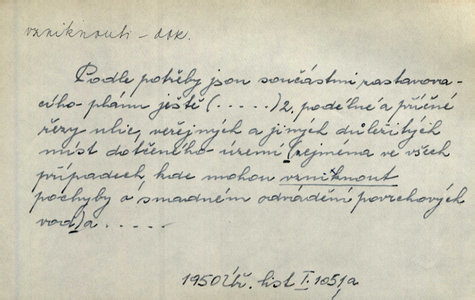 vzniknouti - dok.
Podle potřeby jsou součástmi zastavova-
cího plánu ještě (.....) 2. podélné a příčné
řezy ulic, veřejných a jiných důležitých
míst dotčeného území (zejména ve všech
případech, kde mohou vzniknout
pochyby o snadném odvádění povrchových
vod) a .....
1950 Úř. list I. 1051/a